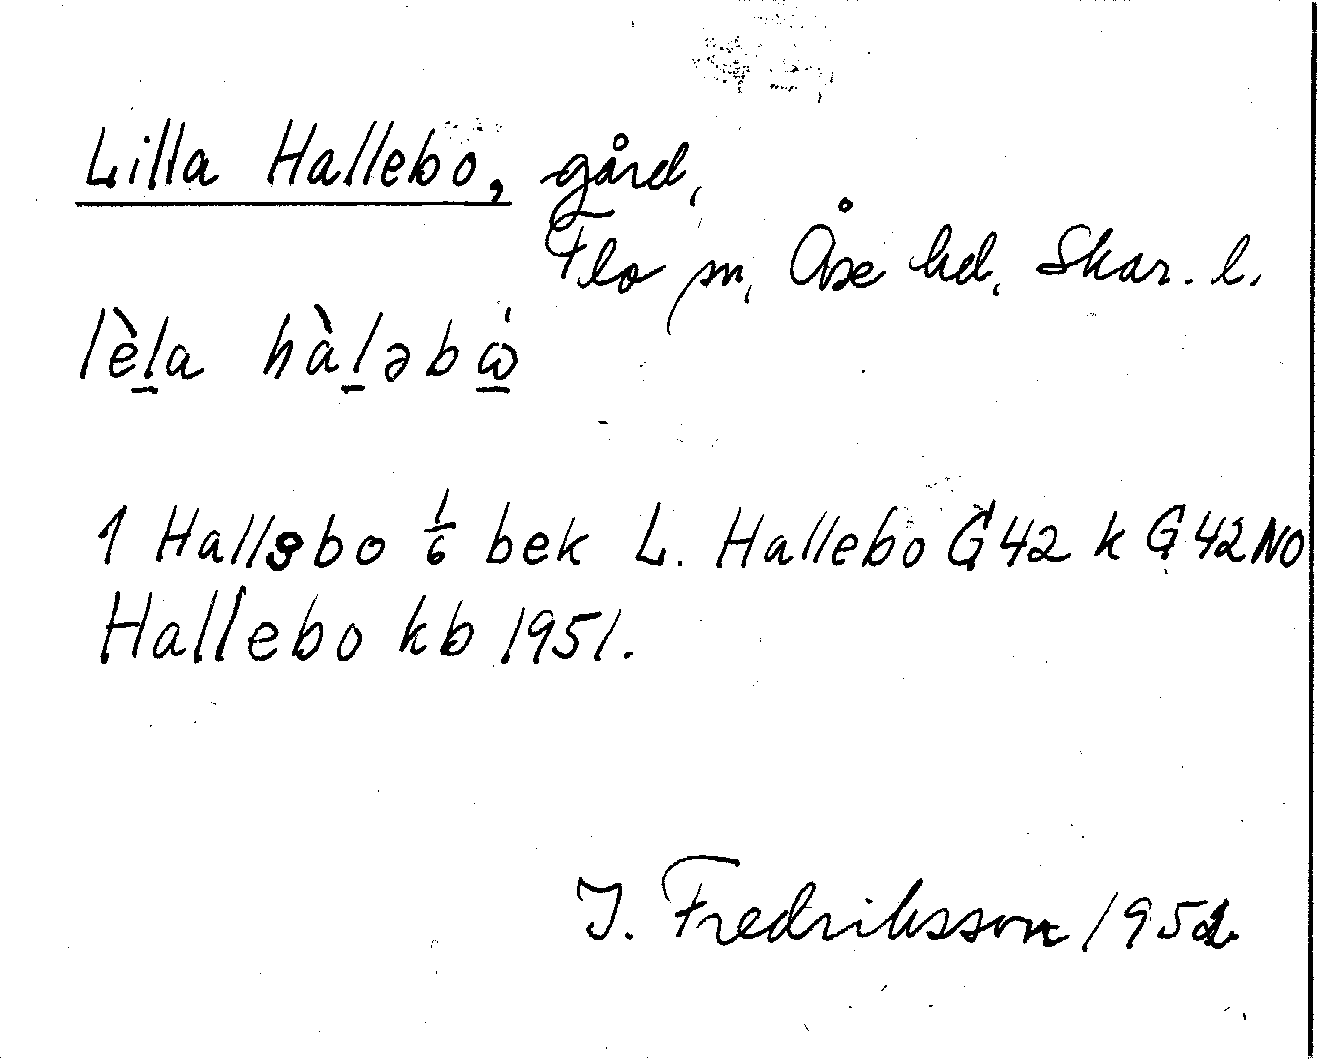 Lilla Hallebo, gård,
Flo sn, Åse hd, Skar. l.
lèl̲a hàl̲əbω̲̇
1 Hallebo 1/6 bek L. Hallebo G42 k G42NO
Hallebo kb 1951.
I. Fredriksson 1952